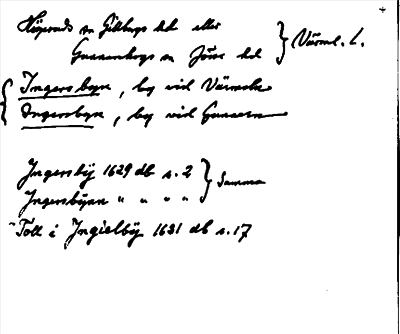 Höpereds sn Gillbergs hd eller
Gunnarskogs sn Jösse hd } Värml. l.
{ Ingersbyn, by vid Värmeln
Ingersbyn, by vid Gunnern
Ingersbÿ 1629 db s. 2
Ingersbÿnn " " " " } Samma
Toll i Jngielbÿ 1631 db s. 17